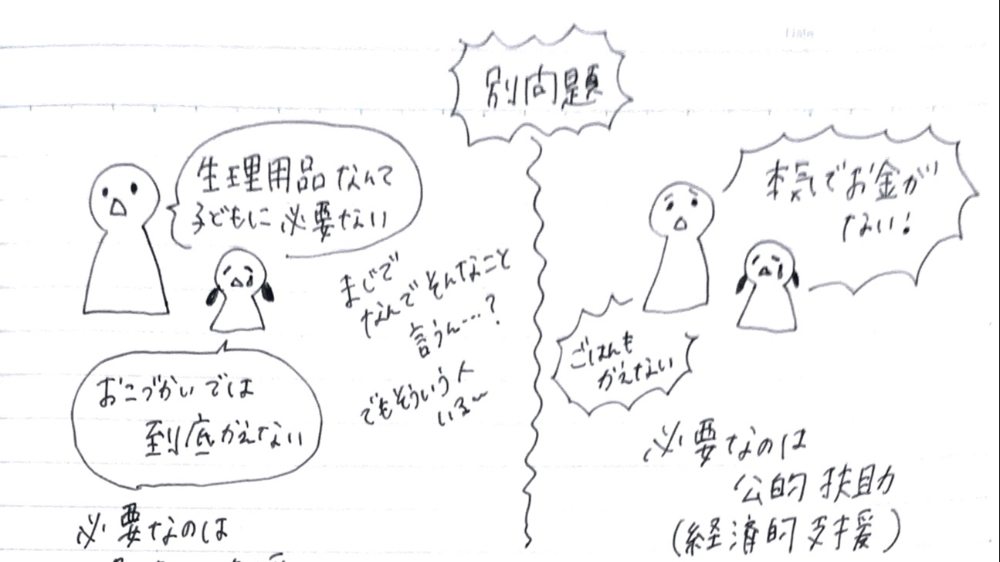 別問題
生理用品なんて
子どもに必要ない
おこづかいでは
到底かえない
まじで
なんでそんなこと
言うん…?
でもそういう人
いる〜
必要なのは
本気でお金が
ない!
ごはんも
かえない
必要なのは
公的扶助
(経済的支援)